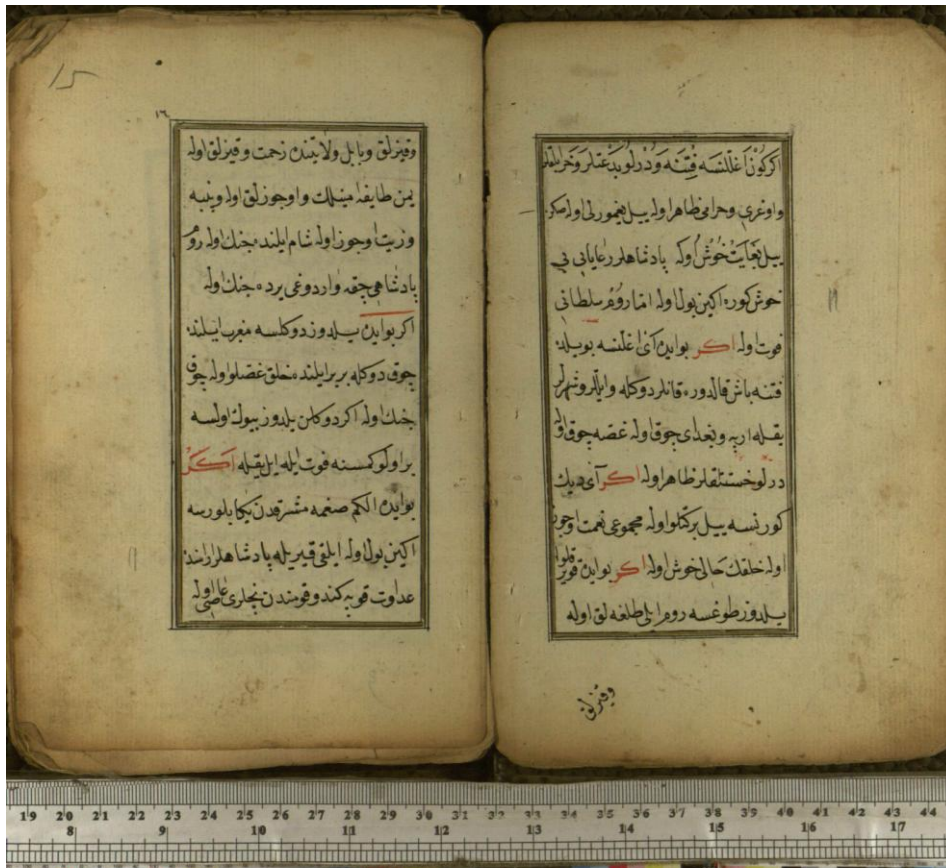 اكر كون اغلنسه فتنه و درلو بدعتلر و خرابلقلر
واوغرى وحرامى ظاهر اوله ييل يغمورلى اوله مكر
ييل بغايت خوش اوله پادشاهلر رعايانى نى
خوش كوره اكين بول اوله اما روم سلطانى
فوت اوله اكر بوايده آى اغلنسه بويلده
فتنه باش قالدوره قانلر دوكله وايللر وشهرلر
يقله اربه وبغداى چوق اوله غصه چوق اوله
درلو خسته‌لقلر ظاهر اوله اكر آى ديك
كورنسه ييل بركتلو اوله مجموعى نعمت اوجوز
اوله خلقك حالى خوش اوله اكر بوايده قويرقلو
يلدوز طوغسه روم ايلى طلغه لق اوله
وقيزلق
15
١٦
وقيزلق وبابل ولايتنده زحمت وقيزلق اوله
يمن طايفه امينلك واوجوزلق اوله وپنبه
وزيت اوجوز اوله شام ايلنده جنك اوله روم
پادشاهى چقه واردوغى يرده جنك اوله
اكر بوايده يلدوز دوكلسه مغرب ايلنده
چوق دوكله بربر ايلنده خلق غصلو اوله چوق
جنك اوله اكر دوكلن يلدوز بيوك اولسه
بر اولو كمسنه فوت ايله ايل يقله اكر
بوايده الكم صغمه مشرقدن يكا بلورسه
اكين بول اوله ايلقى قيريله پادشاهلر اراسنده
عداوت قويه كندو قومندن نچلرى عاصى اوله